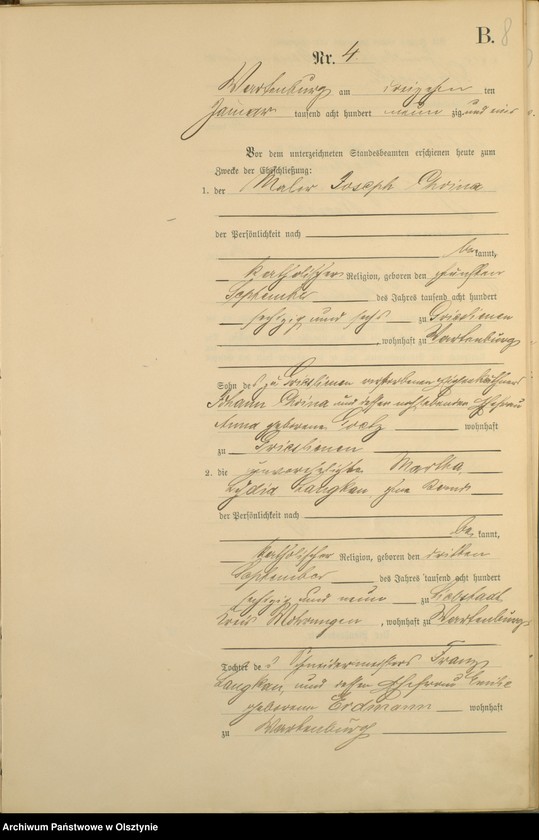 B. 8
Nr. 4
Wartenburg am dreizehn ten
Januar tausend acht hundert neun zig und eins
Vor dem unterzeichneten Standesbeamten erschienen heute zum
Zwecke der Eheschließung:
1. der Maler Joseph
der Persönlichkeit nach
be kannt,
katholischer Religion, geboren den fünften
September des Jahres tausend acht hundert
sechzig und sechs zu
, wohnhaft zu Wartenburg
Sohn des zu verstorbenen Eigenkäthners
Johann und dessen noch lebenden Ehefrau
Anna geborene wohnhaft
zu
2. die unverehelichte Martha
Lydia Langkau, ohne
der Persönlichkeit nach
be kannt,
katholischer Religion, geboren den dritten
September des Jahres tausend acht hundert
sechzig und neun zu Liebstadt
Kreis Mohrungen , wohnhaft zu Wartenburg
Tochter des Schneidermeisters Franz
Langkau und dessen Ehefrau
geborene Erdmann wohnhaft
zu Wartenburg
Archiwum Państwowe w Olsztynie